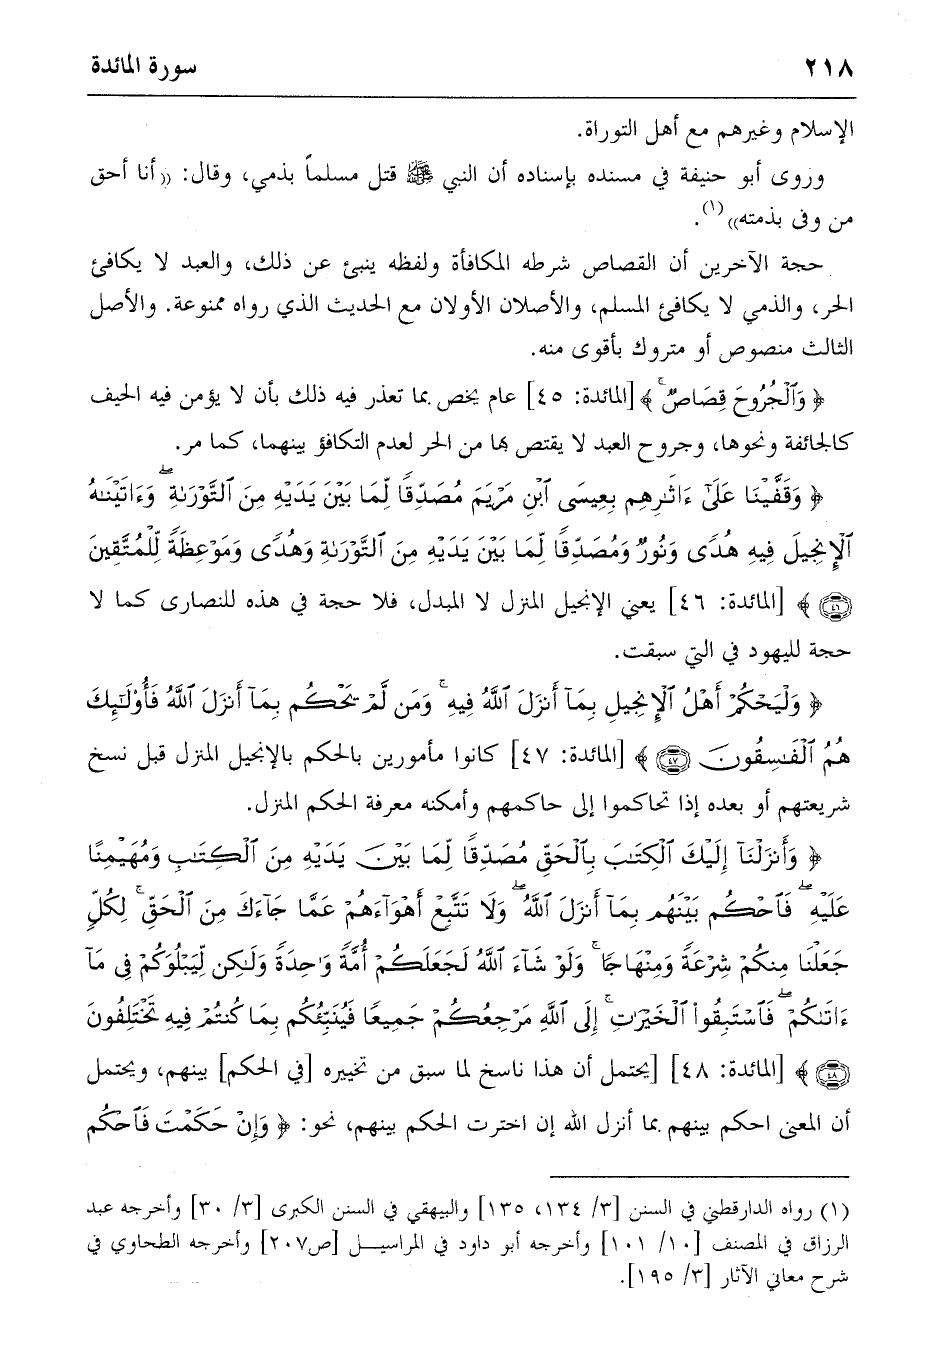 ٢١٨ سورة المائدة
الإسلام وغيرهم مع أهل التوراة.
وروى أبو حنيفة في مسنده بإسناده أن النبي ﷺ قتل مسلماً بذمي، وقال: ((أنا أحق
من وفى بذمته))(١).
حجة الآخرين أن القصاص شرطه المكافأة ولفظه ينبئ عن ذلك، والعبد لا يكافئ
الحر، والذمي لا يكافئ المسلم، والأصلان الأولان مع الحديث الذي رواه ممنوعة. والأصل
الثالث منصوص أو متروك بأقوى منه.
﴿ وَٱلْجُرُوحَ قِصَاصٌ ۚ ﴾ [المائدة: ٤٥] عام يخص بما تعذر فيه ذلك بأن لا يؤمن فيه الحيف
كالجائفة ونحوها، وجروح العبد لا يقتص بها من الحر لعدم التكافؤ بينهما، كما مر.
﴿ وَقَفَّيْنَا عَلَىٰٓ ءَاثَٰرِهِم بِعِيسَى ٱبْنِ مَرْيَمَ مُصَدِّقًا لِّمَا بَيْنَ يَدَيْهِ مِنَ ٱلتَّوْرَىٰةِ ۖ وَءَاتَيْنَٰهُ
ٱلْإِنجِيلَ فِيهِ هُدًى وَنُورٌ وَمُصَدِّقًا لِّمَا بَيْنَ يَدَيْهِ مِنَ ٱلتَّوْرَىٰةِ وَهُدًى وَمَوْعِظَةً لِّلْمُتَّقِينَ
٤٦ ﴾ [المائدة: ٤٦] يعني الإنجيل المنزل لا المبدل، فلا حجة في هذه للنصارى كما لا
حجة لليهود في التي سبقت.
﴿ وَلْيَحْكُمْ أَهْلُ ٱلْإِنجِيلِ بِمَآ أَنزَلَ ٱللَّهُ فِيهِ ۚ وَمَن لَّمْ يَحْكُم بِمَآ أَنزَلَ ٱللَّهُ فَأُو۟لَٰٓئِكَ
هُمُ ٱلْفَٰسِقُونَ ٤٧ ﴾ [المائدة: ٤٧] كانوا مأمورين بالحكم بالإنجيل المنزل قبل نسخ
شريعتهم أو بعده إذا تحاكموا إلى حاكمهم وأمكنه معرفة الحكم المنزل.
﴿ وَأَنزَلْنَآ إِلَيْكَ ٱلْكِتَٰبَ بِٱلْحَقِّ مُصَدِّقًا لِّمَا بَيْنَ يَدَيْهِ مِنَ ٱلْكِتَٰبِ وَمُهَيْمِنًا
عَلَيْهِ ۖ فَٱحْكُم بَيْنَهُم بِمَآ أَنزَلَ ٱللَّهُ ۖ وَلَا تَتَّبِعْ أَهْوَآءَهُمْ عَمَّا جَآءَكَ مِنَ ٱلْحَقِّ ۚ لِكُلٍّ
جَعَلْنَا مِنكُمْ شِرْعَةً وَمِنْهَاجًا ۚ وَلَوْ شَآءَ ٱللَّهُ لَجَعَلَكُمْ أُمَّةً وَٰحِدَةً وَلَٰكِن لِّيَبْلُوَكُمْ فِى مَآ
ءَاتَىٰكُمْ ۖ فَٱسْتَبِقُوا۟ ٱلْخَيْرَٰتِ ۚ إِلَى ٱللَّهِ مَرْجِعُكُمْ جَمِيعًا فَيُنَبِّئُكُم بِمَا كُنتُمْ فِيهِ تَخْتَلِفُونَ
٤٨ ﴾ [المائدة: ٤٨] [يحتمل أن هذا ناسخ لما سبق من تخييره [في الحكم] بينهم، ويحتمل
أن المعنى احكم بينهم بما أنزل الله إن اخترت الحكم بينهم، نحو: ﴿ وَإِنْ حَكَمْتَ فَٱحْكُم
(١) رواه الدارقطني في السنن [٣/ ١٣٤، ١٣٥] والبيهقي في السنن الكبرى [٣/ ٣٠] وأخرجه عبد
الرزاق في المصنف [١٠/ ١٠١] وأخرجه أبو داود في المراسيل [ص٢٠٧] وأخرجه الطحاوي في
شرح معاني الآثار [٣/ ١٩٥].